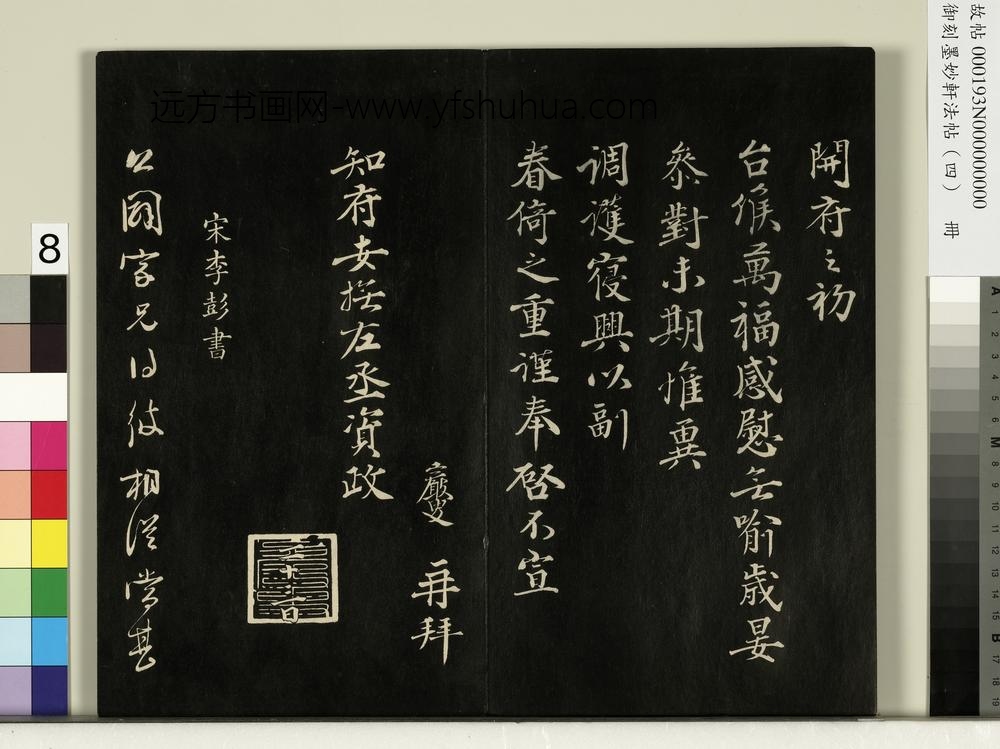 開府之初
台候萬福感慰無喻歲晏
參對未期惟冀
调護寢興以副
眷倚之重謹奉啓不宣
再拜
知府安撫左丞資政
宋李彭書
公國字兄
相從當甚
远方书画网-www.yfshuhua.com
故帖 000193N000000000
御刻墨妙軒法帖（四） 冊
8
A 1 2 3 4 5 6 M 8 9 10 11 12 13 14 15 B 17 18 19